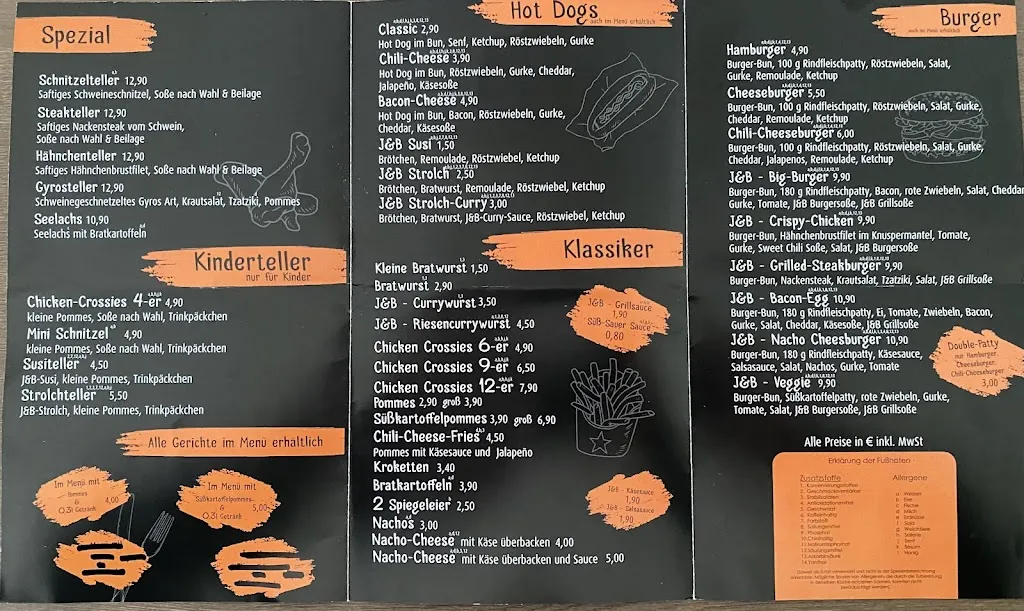 Spezial
Schnitzelteller 12,90
Saftiges Schweineschnitzel, Soße nach Wahl & Beilage
Steakteller 12,90
Saftiges Nackensteak vom Schwein,
Soße nach Wahl & Beilage
Hähnchenteller 12,90
Saftiges Hähnchenbrustfilet, Soße nach Wahl & Beilage
Gyrosteller 12,90
Schweinegeschnetzeltes Gyros Art, Krautsalat, Tzatziki, Pommes
Seelachs 10,90
Seelachs mit Bratkartoffeln
Kinderteller
nur für Kinder
Chicken-Crossies 4-er 4,90
kleine Pommes, Soße nach Wahl, Trinkpäckchen
Mini Schnitzel 4,90
kleine Pommes, Soße nach Wahl, Trinkpäckchen
Susiteller 4,50
J&B-Susi, kleine Pommes, Trinkpäckchen
Strolchteller 5,50
J&B-Strolch, kleine Pommes, Trinkpäckchen
Alle Gerichte im Menü erhältlich
Im Menü mit
Pommes
&
0.3l Getränk
4,00
Im Menü mit
Süßkartoffelpommes
&
0.3l Getränk
5,00
Hot Dogs
auch im Menü erhältlich
Classic 2,90
Hot Dog im Bun, Senf, Ketchup, Röstzwiebeln, Gurke
Chili-Cheese 3,90
Hot Dog im Bun, Röstzwiebeln, Gurke, Cheddar,
Jalapeño, Käsesoße
Bacon-Cheese 4,90
Hot Dog im Bun, Bacon, Röstzwiebeln, Gurke,
Cheddar, Käsesoße
J&B Susi 1,50
Brötchen, Remoulade, Röstzwiebel, Ketchup
J&B Strolch 2,50
Brötchen, Bratwurst, Remoulade, Röstzwiebel, Ketchup
J&B Strolch-Curry 3,00
Brötchen, Bratwurst, J&B-Curry-Sauce, Röstzwiebel, Ketchup
Klassiker
Kleine Bratwurst 1,50
Bratwurst 2,90
J&B - Currywurst 3,50
J&B - Riesencurrywurst 4,50
Chicken Crossies 6-er 4,90
Chicken Crossies 9-er 6,50
Chicken Crossies 12-er 7,90
Pommes 2,90 groß 3,90
Süßkartoffelpommes 3,90 groß 6,90
Chili-Cheese-Fries 4,50
Pommes mit Käsesauce und Jalapeño
Kroketten 3,40
Bratkartoffeln 3,90
2 Spiegeleier 2,50
Nachos 3,00
Nacho-Cheese mit Käse überbacken 4,00
Nacho-Cheese mit Käse überbacken und Sauce 5,00
J&B - Grillsauce
1,90
Süß-Sauer Sauce
0,80
J&B - Käsesauce
1,90
J&B - Salsasauce
1,90
Burger
auch im Menü erhältlich
Hamburger 4,90
Burger-Bun, 100 g Rindfleischpatty, Röstzwiebeln, Salat,
Gurke, Remoulade, Ketchup
Cheeseburger 5,50
Burger-Bun, 100 g Rindfleischpatty, Röstzwiebeln, Salat, Gurke,
Cheddar, Remoulade, Ketchup
Chili-Cheeseburger 6,00
Burger-Bun, 100 g Rindfleischpatty, Röstzwiebeln, Salat, Gurke,
Cheddar, Jalapenos, Remoulade, Ketchup
J&B - Big-Burger 9,90
Burger-Bun, 180 g Rindfleischpatty, Bacon, rote Zwiebeln, Salat, Cheddar
Gurke, Tomate, J&B Burgersoße, J&B Grillsoße
J&B - Crispy-Chicken 9,90
Burger-Bun, Hähnchenbrustfilet im Knuspermantel, Tomate,
Gurke, Sweet Chili Soße, Salat, J&B Burgersoße
J&B - Grilled-Steakburger 9,90
Burger-Bun, Nackensteak, Krautsalat, Tzatziki, Salat, J&B Grillsoße
J&B - Bacon-Egg 10,90
Burger-Bun, 180 g Rindfleischpatty, Ei, Tomate, Zwiebeln, Bacon,
Gurke, Salat, Cheddar, Käsesoße, J&B Grillsoße
J&B - Nacho Cheeseburger 10,90
Burger-Bun, 180 g Rindfleischpatty, Käsesauce,
Salsasauce, Salat, Nachos, Gurke, Tomate
J&B - Veggie 9,90
Burger-Bun, Süßkartoffelpatty, rote Zwiebeln, Gurke,
Tomate, Salat, J&B Burgersoße, J&B Grillsoße
Double-Patty
mit Hamburger,
Cheeseburger,
Chili-Cheeseburger
3,00
Alle Preise in € inkl. MwSt
Erklärung der Fußnoten
Zusatzstoffe
Allergene